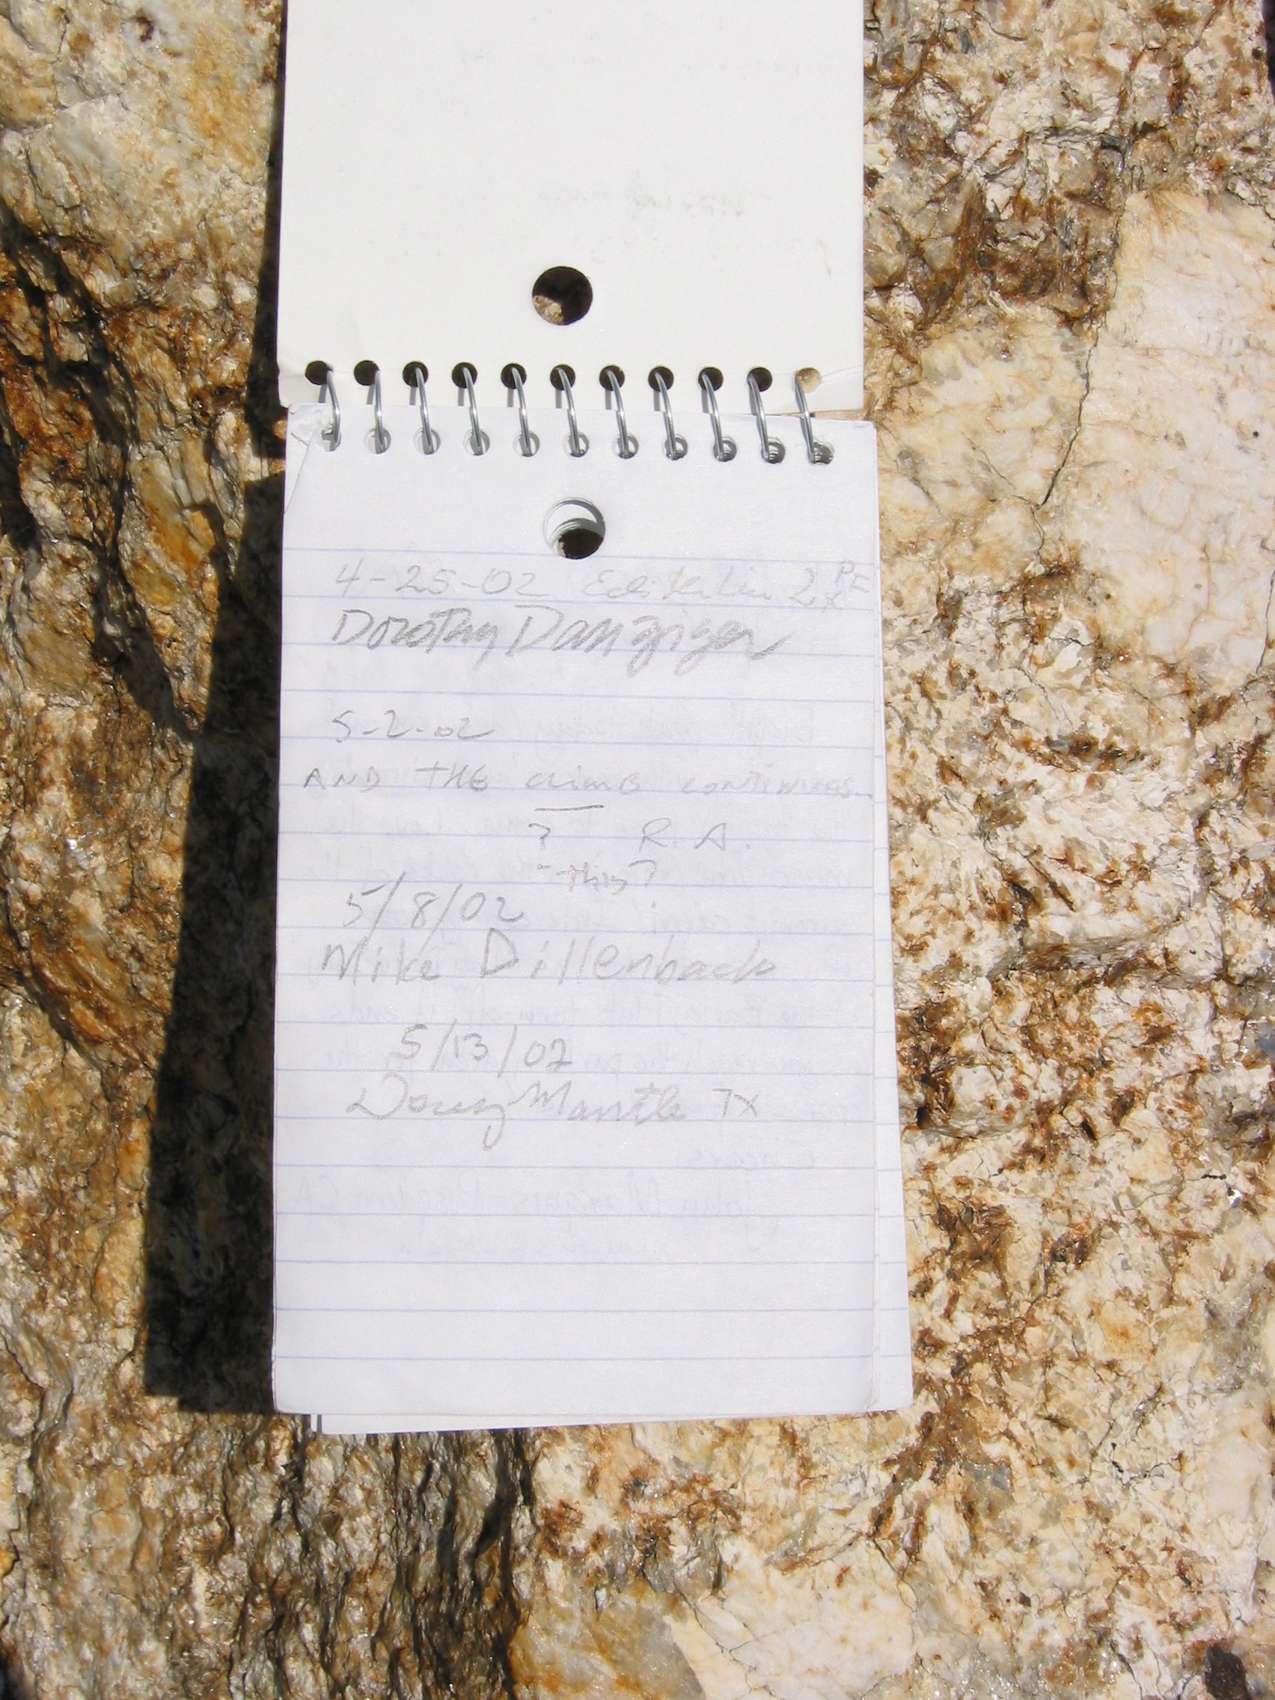 4-25-02
Dorothy Danziger
5-2-02
AND THE CLIMB CONTINUES
? R.A.
this?
5/8/02
Mike Dillenback
5/13/02
Doug Mantle 7x